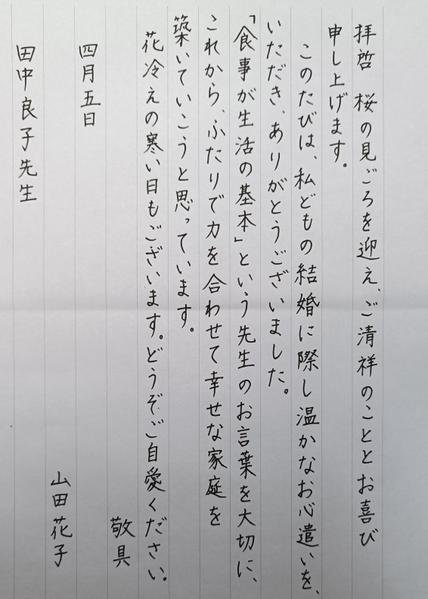 拝啓 桜の見ごろを迎え、ご清祥のこととお喜び
申し上げます。
このたびは、私どもの結婚に際し温かなお心遣いを、
いただき、ありがとうございました。
「食事が生活の基本」という先生のお言葉を大切に、
これから、ふたりで力を合わせて幸せな家庭を
築いていこうと思っています。
花冷えの寒い日もございます。どうぞご自愛ください。
敬具
四月五日
山田花子
田中良子先生